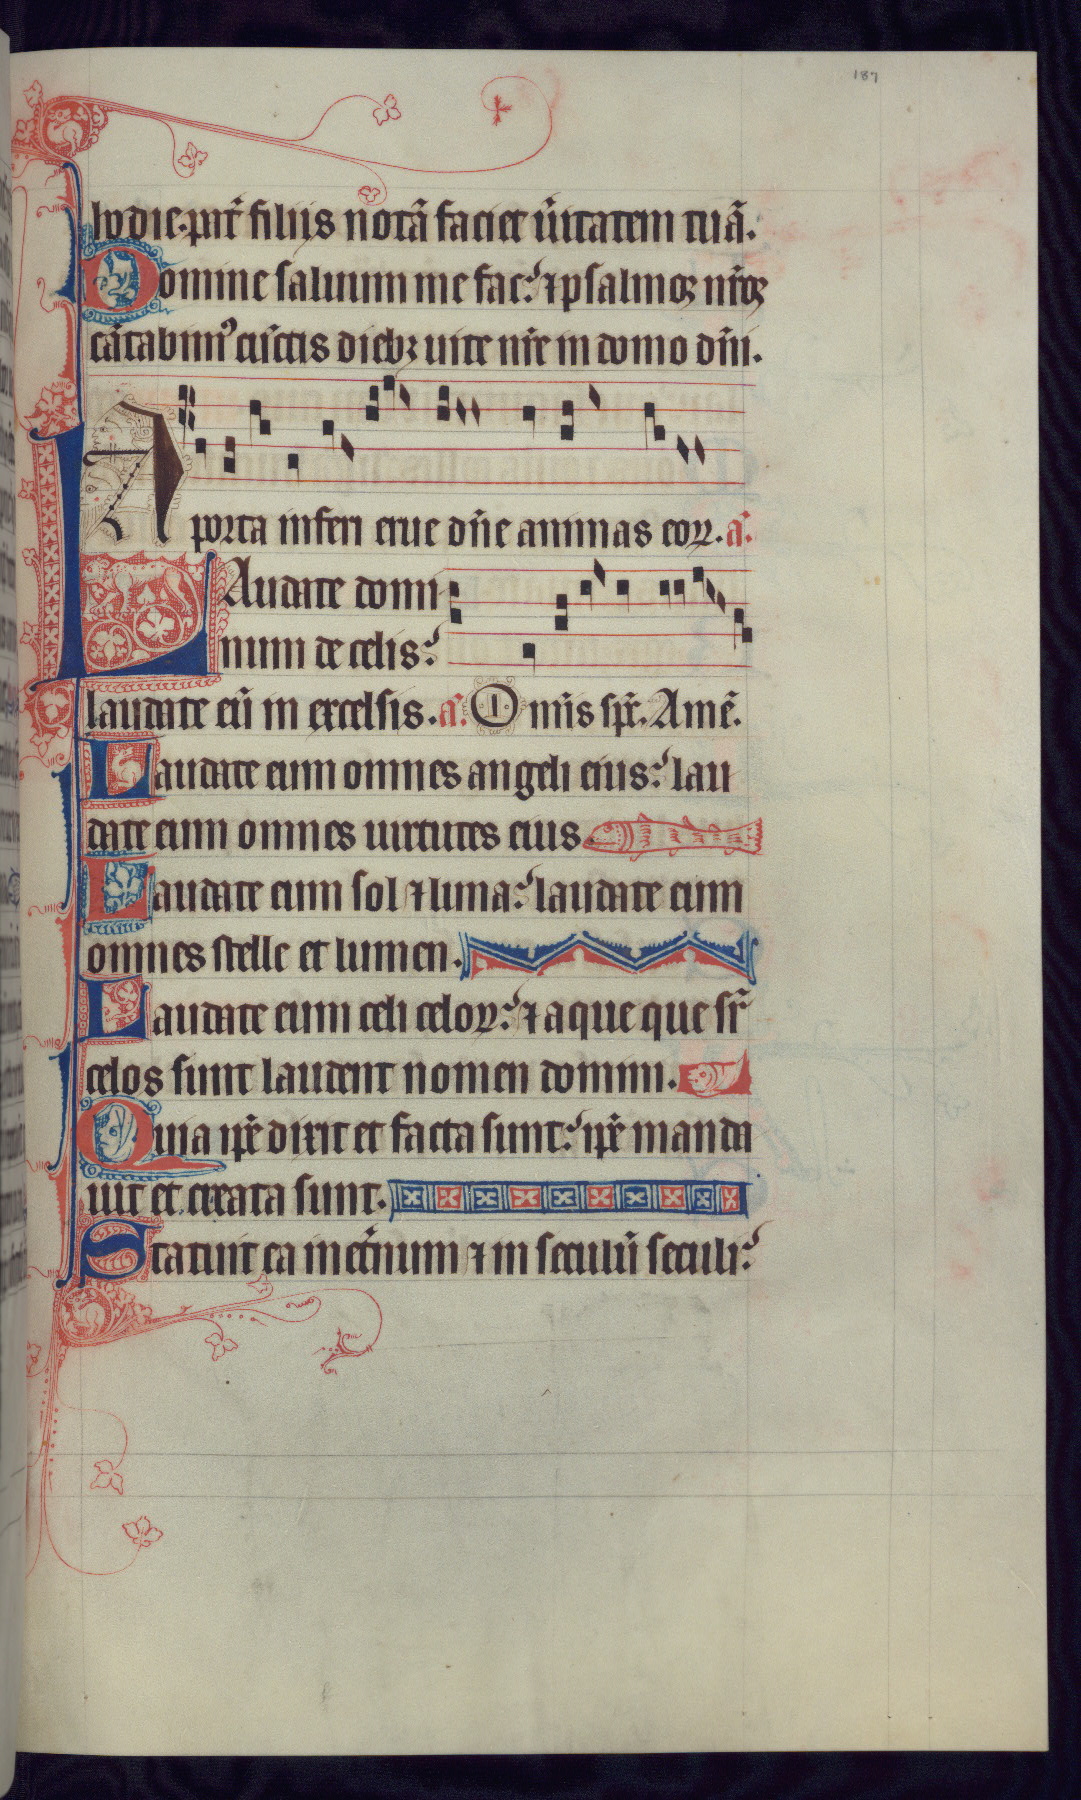 187
hodie. pat̃ filiis notã faciet ũitatem tuã.
Domine saluum me fac: ⁊ psalmoꝫ nr̃oꝫ
cãtabimꝰ cũctis diebꝫ uite nr̃e in domo dñi.
A porta inferi erue dñe animas eoꝝ. a͛.
Laudate domi
num de celis:
laudate eũ in excelsis. a͛. Omĩs sp̃c. Amẽ.
Laudate eum omnes angeli eius: lau
date eum omnes uirtutes eius
Laudate eum sol ⁊ luna: laudate eum
omnes stelle et lumen.
Laudate eum celi celoꝝ: ⁊ aque que sr̃
celos sunt laudent nomen domini.
Quia ip̃e dixit et facta sunt: ip̃e manda
uit et creata sunt.
Statuit ea in et̃num ⁊ in seculũ seculi: